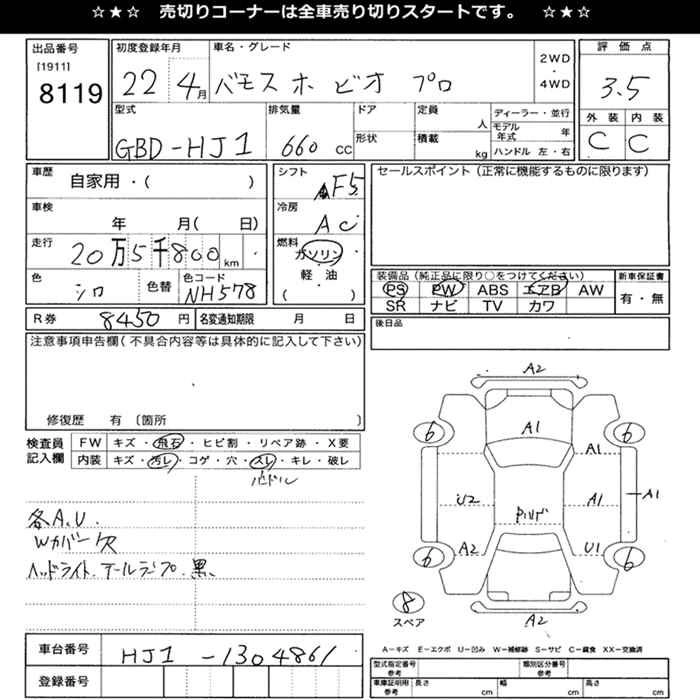 ☆★☆　売切りコーナーは全車売り切りスタートです。　☆★☆
出品番号
[1911]
8119
初度登録年月
22 4月
車名・グレード
バモス ホビオ プロ
2WD
・
4WD
評価点
3.5
型式
GBD-HJ1
排気量
660 CC
ドア
形状
定員
人
積載
kg
ディーラー・並行
モデル年式 年
ハンドル 左・右
外装 内装
C C
車歴
自家用・( )
シフト
F5
セールスポイント（正常に機能するものに限ります）
車検
年 月( 日)
冷房
AC
走行
20万5千800km
燃料
ガソリン
軽・油
( )
色
シロ
色替
色コード
NH578
装備品（純正品に限り○をつけてください）
新車保証書
PS PW ABS エアB AW
有・無
SR ナビ TV カワ
R券 8450円 名変通知期限 月 日
後日品
注意事項申告欄（不具合内容等は具体的に記入して下さい）
修復歴 有〔箇所 〕
検査員
記入欄
FW キズ・飛石・ヒビ割・リペア跡・X要
内装 キズ・汚レ・コゲ・穴・スレ・キレ・破レ
各A.U.
Wカバー欠
ヘッドライト.テールランプ.黒、
A2
6
A1
6
A1
U2
A1
A1
A2
U1
6
6
8
スペア
A2
A−キズ E−エクボ U−凹み W−補修跡 S−サビ C−腐食 XX−交換済
車台番号
HJ1-1304861
登録番号
型式指定番号
参考
類別区分番号
参考
車庫証明用
参考
長さ cm 幅 cm 高さ cm